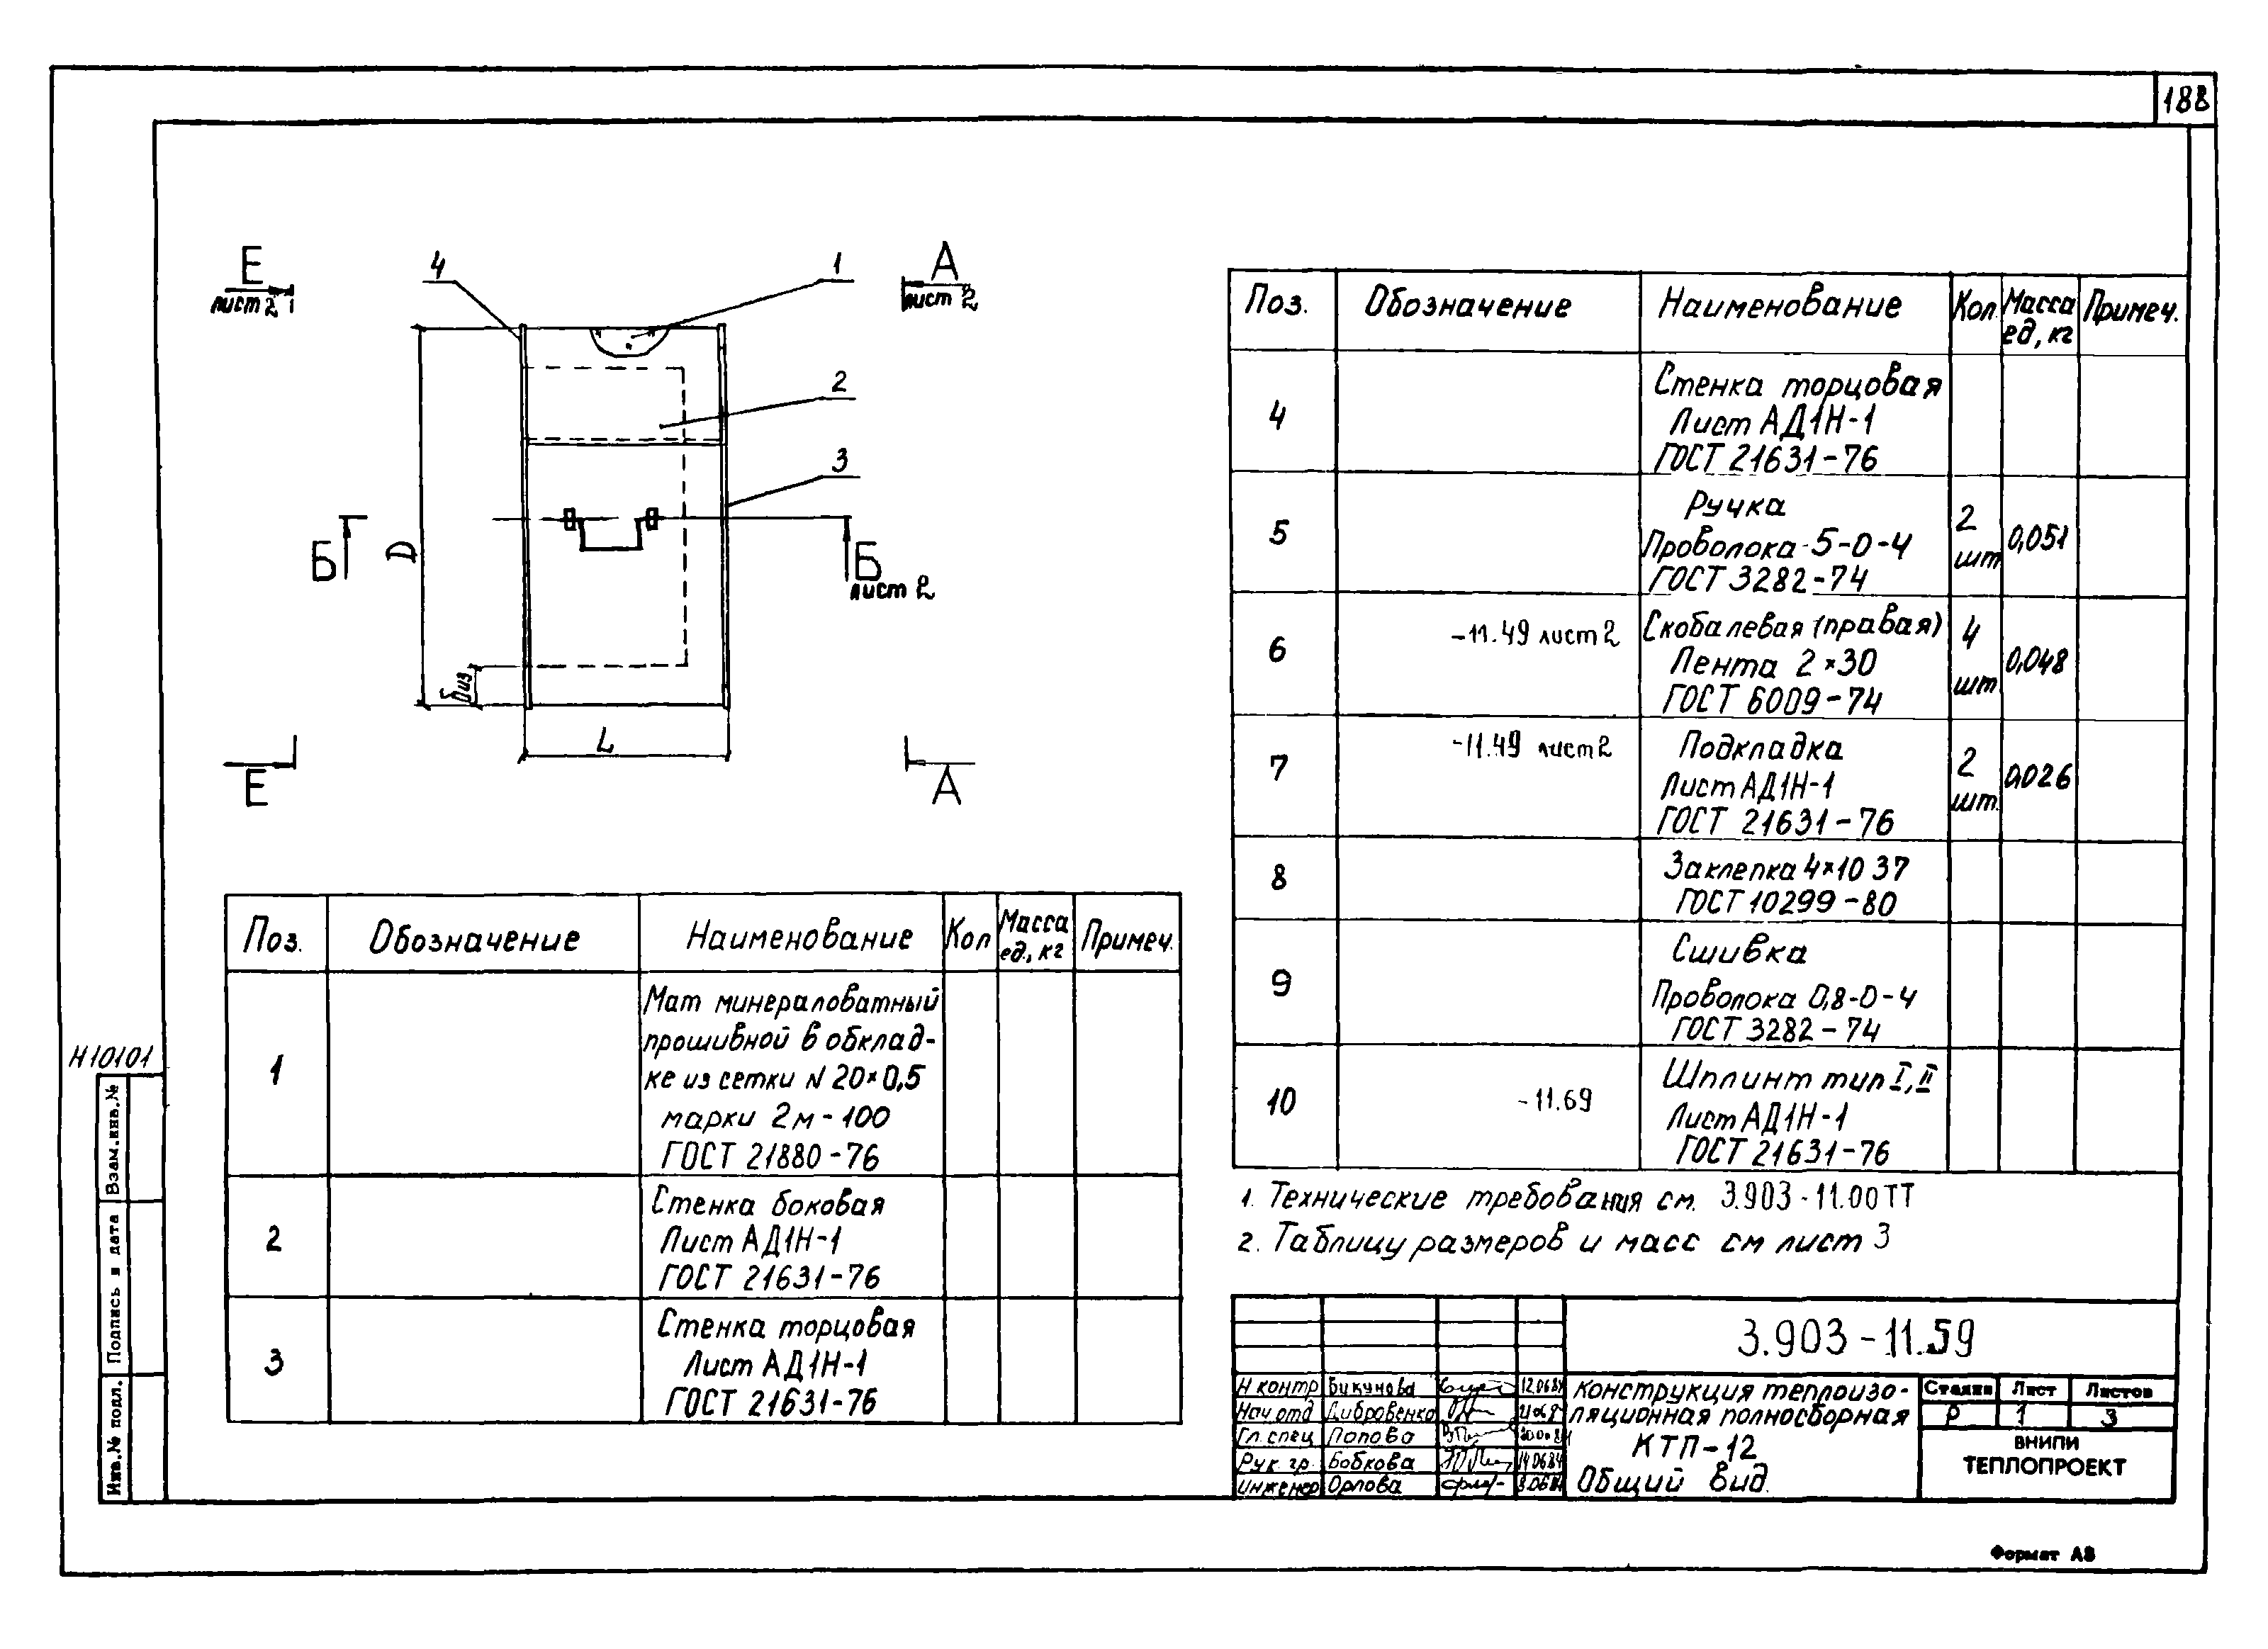 188
Е
лист 2
А
лист 2
4
1
2
3
Б
Б
лист 2
D
δиз
L
Е
А
Поз. Обозначение Наименование Кол Масса ед., кг Примеч.
1 Мат минераловатный
прошивной в обклад-
ке из сетки N 20×0,5
марки 2м-100
ГОСТ 21880-76
2 Стенка боковая
Лист АД1Н-1
ГОСТ 21631-76
3 Стенка торцовая
Лист АД1Н-1
ГОСТ 21631-76
Поз. Обозначение Наименование Кол. Масса ед, кг Примеч.
4 Стенка торцовая
Лист АД1Н-1
ГОСТ 21631-76
5 Ручка 2 шт 0,051
Проволока-5-0-4
ГОСТ 3282-74
6 -11.49 лист 2 Скоба левая (правая) 4 шт 0,048
Лента 2×30
ГОСТ 6009-74
7 -11.49 лист 2 Подкладка 2 шт. 0,026
Лист АД1Н-1
ГОСТ 21631-76
8 Заклепка 4×10 37
ГОСТ 10299-80
9 Сшивка
Проволока 0,8-0-4
ГОСТ 3282-74
10 -11.69 Шплинт тип I, II
Лист АД1Н-1
ГОСТ 21631-76
1. Технические требования см. 3.903-11.00ТТ
2. Таблицу размеров и масс см лист 3
3.903-11.59
Н контр Викунова 12.06.84
Нач отд Дибровенко
Гл. спец Попова
Рук. гр. Бобкова 14.06.84
Инженер Орлова 8.06.84
Конструкция теплоизо-
ляционная полносборная
КТП-12
Общий вид.
Стадия Лист Листов
Р 1 3
ВНИПИ
ТЕПЛОПРОЕКТ
Н10101
Взам.инв.№
Подпись и дата
Инв.№ подл.
Формат А3